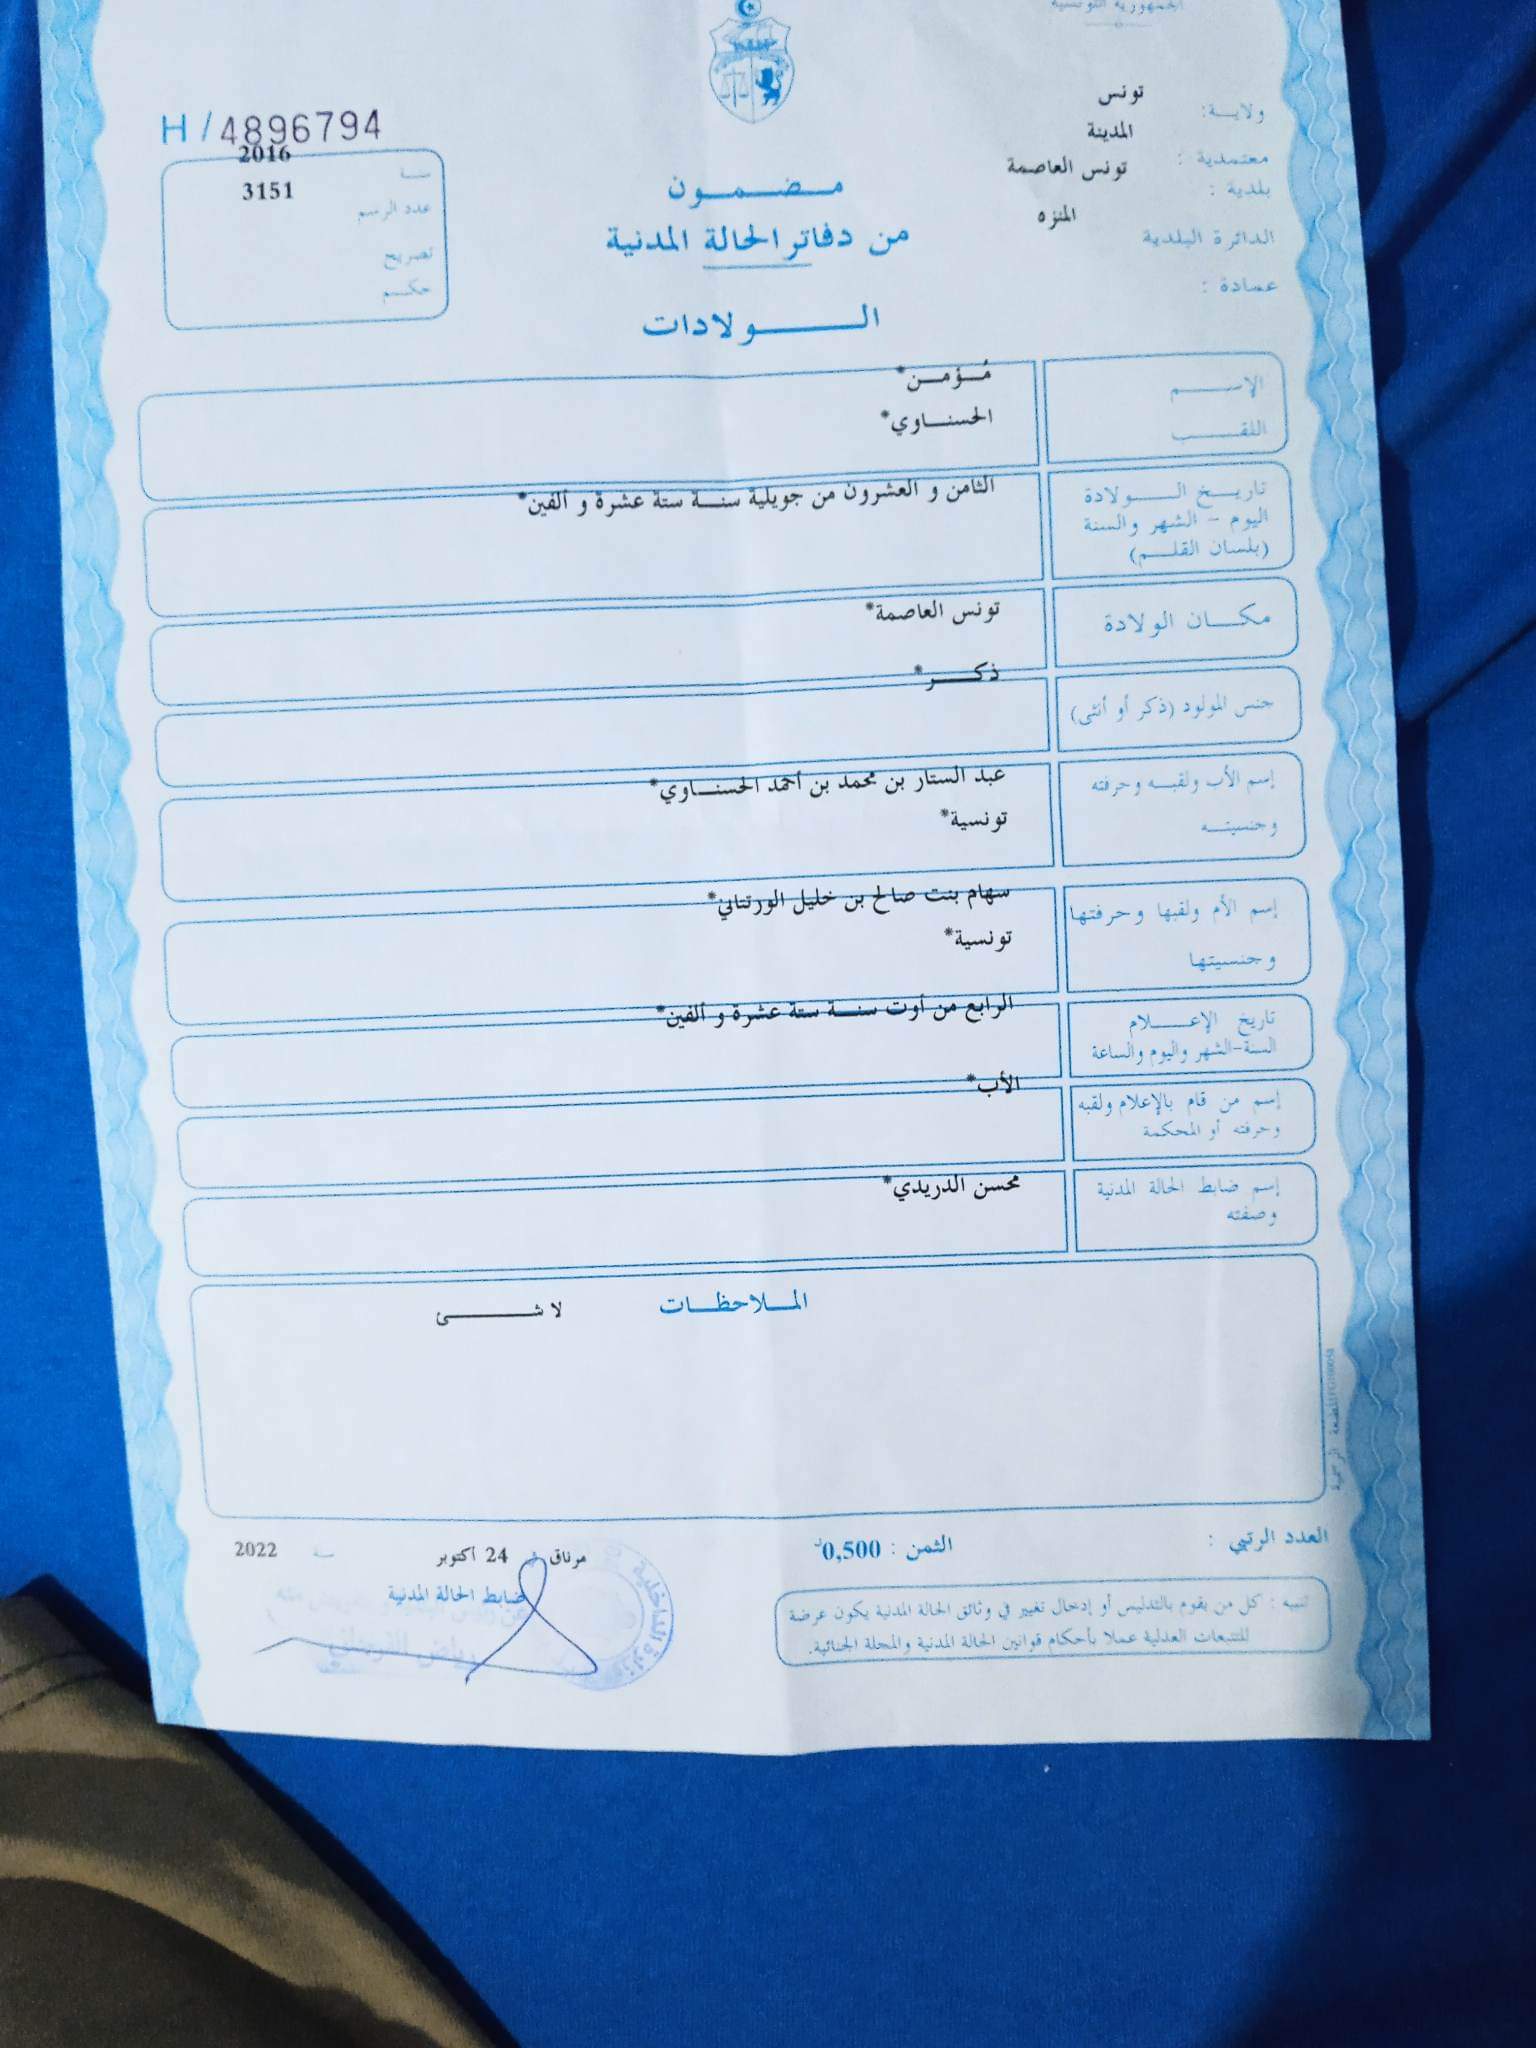 الجمهورية التونسية
ولاية: تونس
معتمدية : المدينة
بلدية : تونس العاصمة
الدائرة البلدية المنزه
عمادة :
H / 4896794
سنة 2016
عدد الرسم 3151
تصريح
حكم
مضمون
من دفاتر الحالة المدنية
الولادات
الإسم مُؤمن*
اللقب الحسناوي*
تاريخ الولادة الثامن و العشرون من جويلية سنة ستة عشرة و ألفين*
اليوم - الشهر والسنة
(بلسان القلم)
مكان الولادة تونس العاصمة*
جنس المولود (ذكر أو أنثى) ذكر*
إسم الأب ولقبه وحرفته عبد الستار بن محمد بن أحمد الحسناوي*
وجنسيته تونسية*
إسم الأم ولقبها وحرفتها سهام بنت صالح بن خليل الورتتاني*
وجنسيتها تونسية*
تاريخ الإعلام الرابع من أوت سنة ستة عشرة و ألفين*
السنة-الشهر واليوم والساعة
إسم من قام بالإعلام ولقبه الأب*
وحرفته أو المحكمة
إسم ضابط الحالة المدنية محسن الدريدي*
وصفته
الملاحظات لا شئ
المطبعة الرسمية
العدد الرتبي :
الثمن : 0,500د
مرناق في 24 أكتوبر سنة 2022
ضابط الحالة المدنية
وزارة الداخلية
تنبيه : كل من يقوم بالتدليس أو إدخال تغيير في وثائق الحالة المدنية يكون عرضة
للتتبعات العدلية عملا بأحكام قوانين الحالة المدنية والمجلة الجنائية.